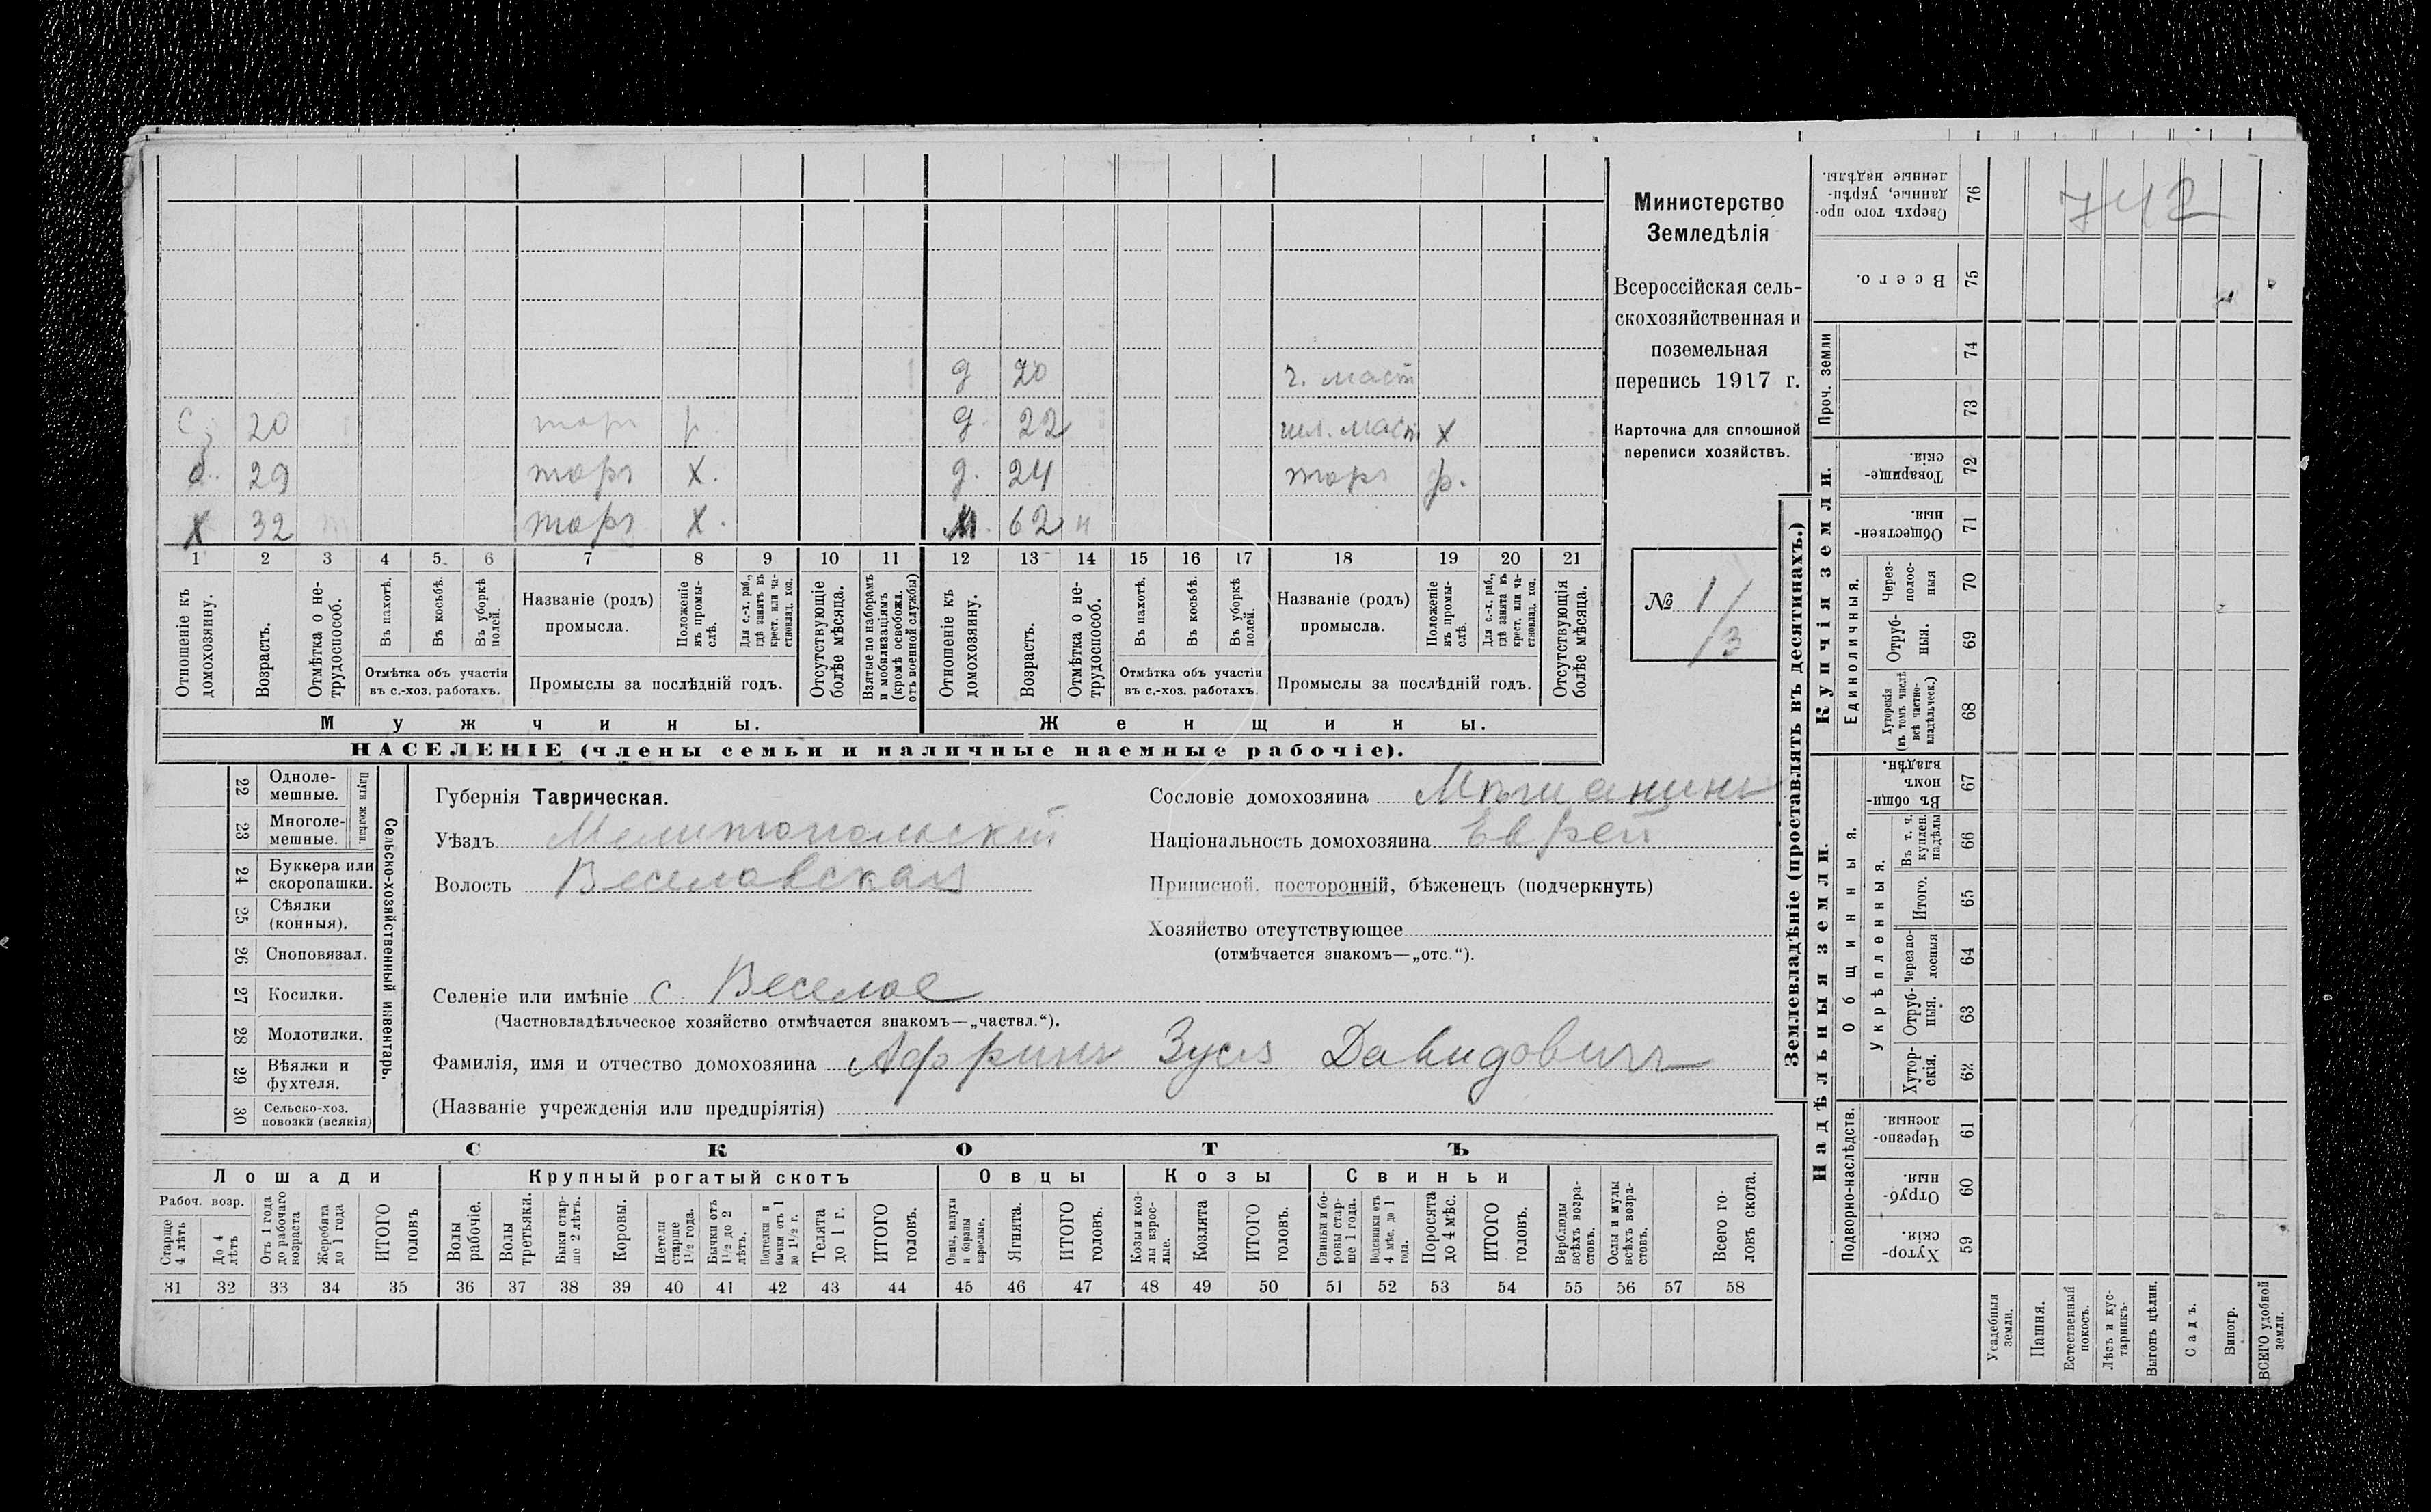 742
Министерство
Земледѣлія
Всероссійская сель-
скохозяйственная и
поземельная
перепись 1917 г.
Карточка для сплошной
переписи хозяйствъ.
№ 1/3
д 20 г. маст
С. 20 торг р д. 22 шл. маст х
б. 29 торг х. д. 24 торг р.
х 32 торг х. М. 62 н
1 2 3 4 5 6 7 8 9 10 11 12 13 14 15 16 17 18 19 20 21
Отношеніе къ домохозяину.
Возрастъ.
Отмѣтка о не-трудоспособ.
Въ пахотѣ.
Въ косьбѣ.
Въ уборкѣ полей.
Отмѣтка объ участіи
въ с.-хоз. работахъ.
Названіе (родъ)
промысла.
Положеніе въ промы-слѣ.
Для с.-х. раб., гдѣ занятъ въ крест. или ча-стновлад. хоз.
Промыслы за послѣдній годъ.
Отсутствующіе болѣе мѣсяца.
Взятые по наборамъ и мобилизаціямъ (кромѣ освобожд. отъ военной службы)
Отношеніе къ домохозяину.
Возрастъ.
Отмѣтка о не-трудоспособ.
Въ пахотѣ.
Въ косьбѣ.
Въ уборкѣ полей.
Отмѣтка объ участіи
въ с.-хоз. работахъ.
Названіе (родъ)
промысла.
Положеніе въ промы-слѣ.
Для с.-х. раб., гдѣ занята въ крест. или ча-стновлад. хоз.
Промыслы за послѣдній годъ.
Отсутствующія болѣе мѣсяца.
Мужчины. Женщины.
НАСЕЛЕНІЕ (члены семьи и наличные наемные рабочіе).
22 Одноле-мешные.
23 Многоле-мешные.
Плуги желѣзн.
24 Буккера или скоропашки.
25 Сѣялки (конныя).
26 Сноповязал.
27 Косилки.
28 Молотилки.
29 Вѣялки и фухтеля.
30 Сельско-хоз. повозки (всякія)
Сельско-хозяйственный инвентарь.
Губернія Таврическая.
Уѣздъ Мелитопольскій
Волость Веселовская
Сословіе домохозяина Мѣщанинъ
Національность домохозяина Еврей
Приписной, посторонній, бѣженецъ (подчеркнуть)
Хозяйство отсутствующее
(отмѣчается знакомъ—„отс.“).
Селеніе или имѣніе с. Веселое
(Частновладѣльческое хозяйство отмѣчается знакомъ—„частвл.“).
Фамилія, имя и отчество домохозяина Аффинъ Зусь Давидовичъ
(Названіе учрежденія или предпріятія)
СКОТЪ
Лошади Крупный рогатый скотъ Овцы Козы Свиньи
Рабоч. возр.
Старше 4 лѣтъ
До 4 лѣтъ
Отъ 1 года до рабочаго возраста
Жеребята до 1 года
ИТОГО головъ
Волы рабочіе.
Волы третьяки.
Быки стар-ше 2 лѣтъ.
Коровы.
Нетели старше 1½ года.
Бычки отъ 1½ до 2 лѣтъ.
Подтелки и бычки отъ 1 до 1½ г.
Телята до 1 г.
ИТОГО головъ.
Овцы, валухи и бараны взрослые.
Ягнята.
ИТОГО головъ.
Козы и коз-лы взрос-лые.
Козлята
ИТОГО головъ.
Свиньи и бо-ровы стар-ше 1 года.
Подсвинки отъ 4 мѣс. до 1 года.
Поросята до 4 мѣс.
ИТОГО головъ.
Верблюды всѣхъ возра-стовъ.
Ослы и мулы всѣхъ возра-стовъ.
Всего го-ловъ скота.
31 32 33 34 35 36 37 38 39 40 41 42 43 44 45 46 47 48 49 50 51 52 53 54 55 56 57 58
Землевладѣніе (проставлять въ десятинахъ.)
Сверхъ того про-данные, укрѣп-ленные надѣлы. 76
Всего. 75
Проч. земли 74
73
Купчія земли.
Товарище-скія. 72
Обществен-ныя. 71
Единоличныя.
Через-полос-ныя 70
Отруб-ныя. 69
Хуторскія (въ томъ числѣ всѣ частно-владѣльческ.) 68
Надѣльныя земли.
Общинныя.
Въ общи-номъ владѣн. 67
Укрѣпленныя.
Въ т. ч. куплен. надѣлы 66
Итого. 65
Черезпо-лосныя 64
Отруб-ныя. 63
Хутор-скія. 62
Подворно-наслѣдств.
Черезпо-лосныя 61
Отруб-ныя. 60
Хутор-скія. 59
Усадебныя земли.
Пашня.
Естественный покосъ.
Лѣсъ и кус-тарникъ.
Выгонъ цѣлин.
Садъ.
Виногр.
ВСЕГО удобной земли.